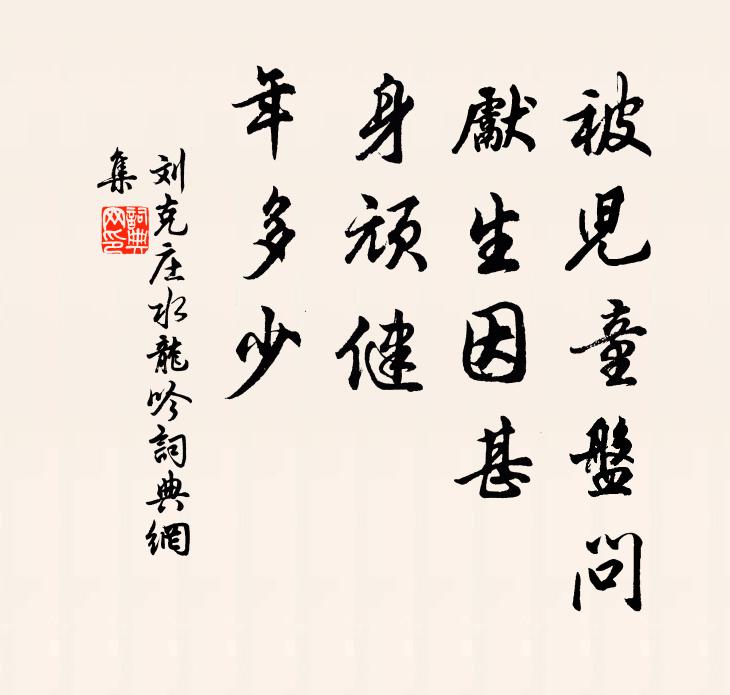 被児童盤問
獻生因甚
身頑健
年多少
刘克庄水龍吟詞典網
集
詞典
网印